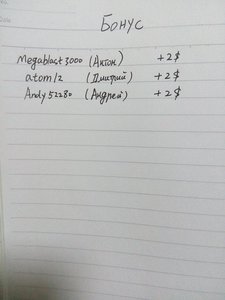 Бонус
Megablast3000 (Антон) +2$
atom12 (Дмитрий) +2$
Andy52280 (Андрей) +2$